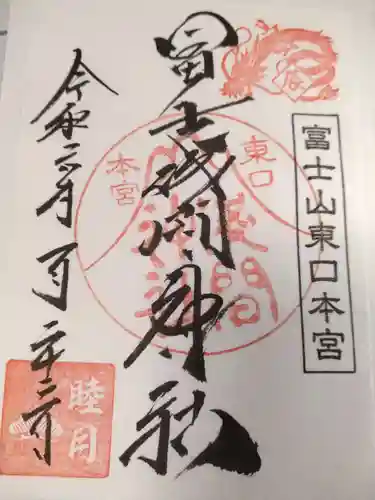 富士山東口本宮
冨士浅間神社
東口
本宮
浅間
神社
令和六年一月二十三日
睦月